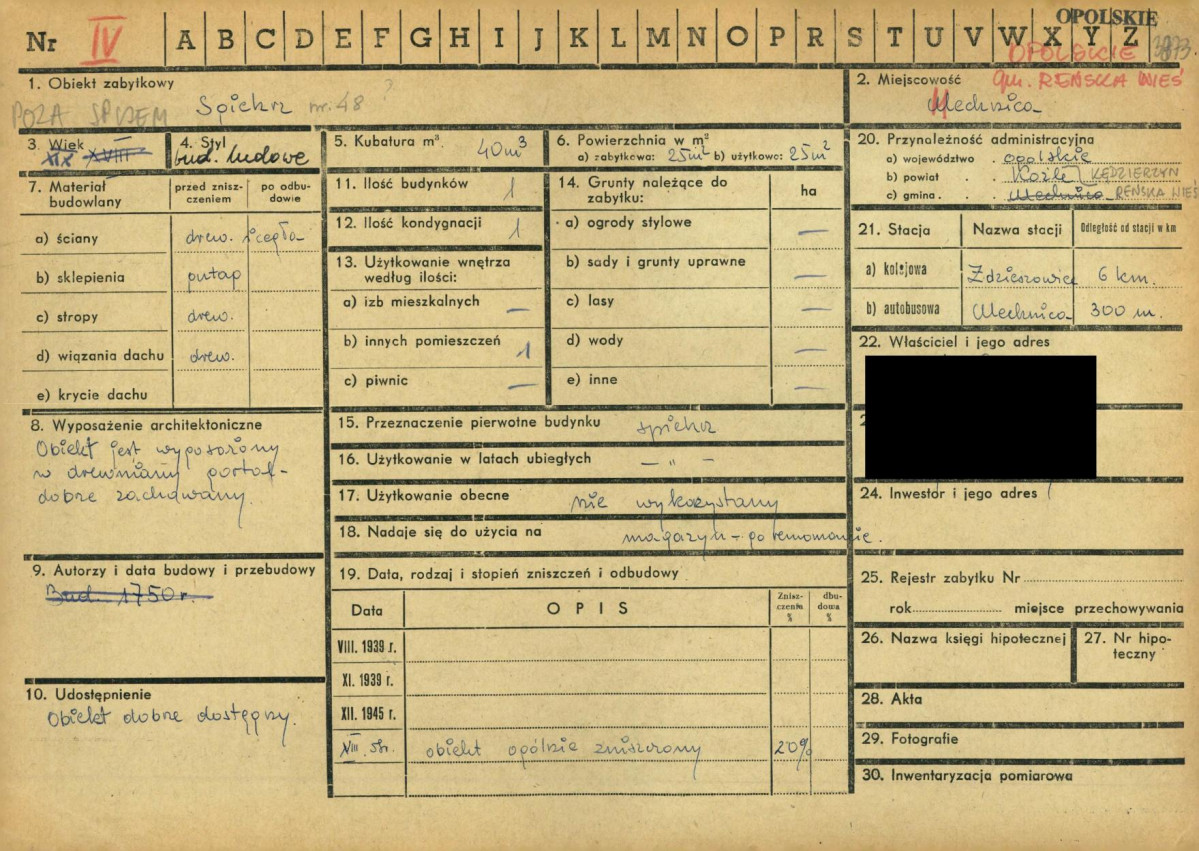 OPOLSKIE
Nr IV A B C D E F G H I J K L M N O P R S T U V W X Y Z
OPOLSKIE
gm. REŃSKA WIEŚ
1. Obiekt zabytkowy
POZA SPISEM Spichrz nr. 48 ?
2. Miejscowość
Mechnica
3. Wiek
XIX XVIII
4. Styl
bud. ludowe
5. Kubatura m³. 40m³
6. Powierzchnia w m²
a) zabytkowa: 25m² b) użytkowo: 25m²
7. Materiał budowlany
przed zniszczeniem
po odbudowie
a) ściany drew. i cegła
b) sklepienia pułap
c) stropy drew.
d) wiązania dachu drew.
e) krycie dachu
8. Wyposażenie architektoniczne
Obiekt jest wyposażony
w drewniany portal-
dobrze zachowany.
9. Autorzy i data budowy i przebudowy
Bud. 1750 r.
10. Udostępnienie
Obiekt dobrze dostępny.
11. Ilość budynków 1
12. Ilość kondygnacji 1
13. Użytkowanie wnętrza
według ilości:
a) izb mieszkalnych —
b) innych pomieszczeń 1
c) piwnic —
14. Grunty należące do
zabytku:
ha
a) ogrody stylowe —
b) sady i grunty uprawne —
c) lasy —
d) wody —
e) inne —
15. Przeznaczenie pierwotne budynku spichrz
16. Użytkowanie w latach ubiegłych — „ —
17. Użytkowanie obecne nie wykorzystany
18. Nadaje się do użycia na magazyn - po remoncie.
19. Data, rodzaj i stopień zniszczeń i odbudowy
Data
OPIS
Zniszczenia %
dbudowa %
VIII. 1939 r.
XI. 1939 r.
XII. 1945 r.
obiekt ogólnie zniszczony 20%
20. Przynależność administracyjna
a) województwo . opolskie
b) powiat . . Koźle KĘDZIERZYN
c) gmina . . Mechnica REŃSKA WIEŚ
21. Stacja
Nazwa stacji
Odległość od stacji w km
a) kolejowa Zdzieszowice 6 km.
b) autobusowa Mechnica 300 m.
22. Właściciel i jego adres
24. Inwestor i jego adres
25. Rejestr zabytku Nr
rok miejsce przechowywania
26. Nazwa księgi hipotecznej
27. Nr hipo-
teczny
28. Akta
29. Fotografie
30. Inwentaryzacja pomiarowa